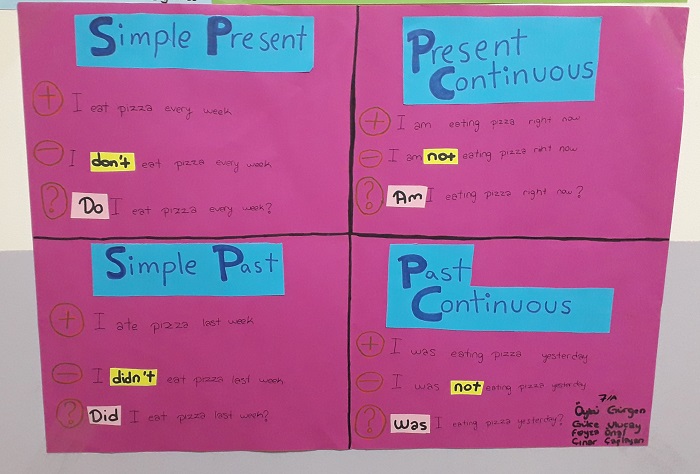 Simple Present
+ I eat pizza every week
- I don't eat pizza every week
? Do I eat pizza every week?
Present
Continuous
+ I am eating pizza right now
- I am not eating pizza now
? Am I eating pizza right now?
Simple Past
+ I ate pizza last week
- I didn't eat pizza last week
? Did I eat pizza last week?
Past
Continuous
+ I was eating pizza yesterday
- I was not eating pizza yesterday
? Was I eating pizza yesterday?
7/A
Öykü Gürgen
Gülce Uluçay
Feyza Önal
Çınar Çağlayan